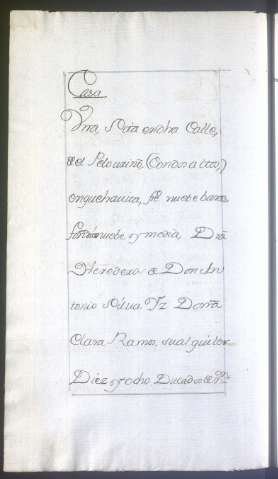 Casa
Vna, Otra en dha Calle,
del Pelourinho (Con Don a
en que havita, fte nuebe baras
fondo nuebe y media, De
Herederos de Don An
tonio Silva. Y Doña
Clara Ramos, su alquiler
Diez y ocho Ducados de